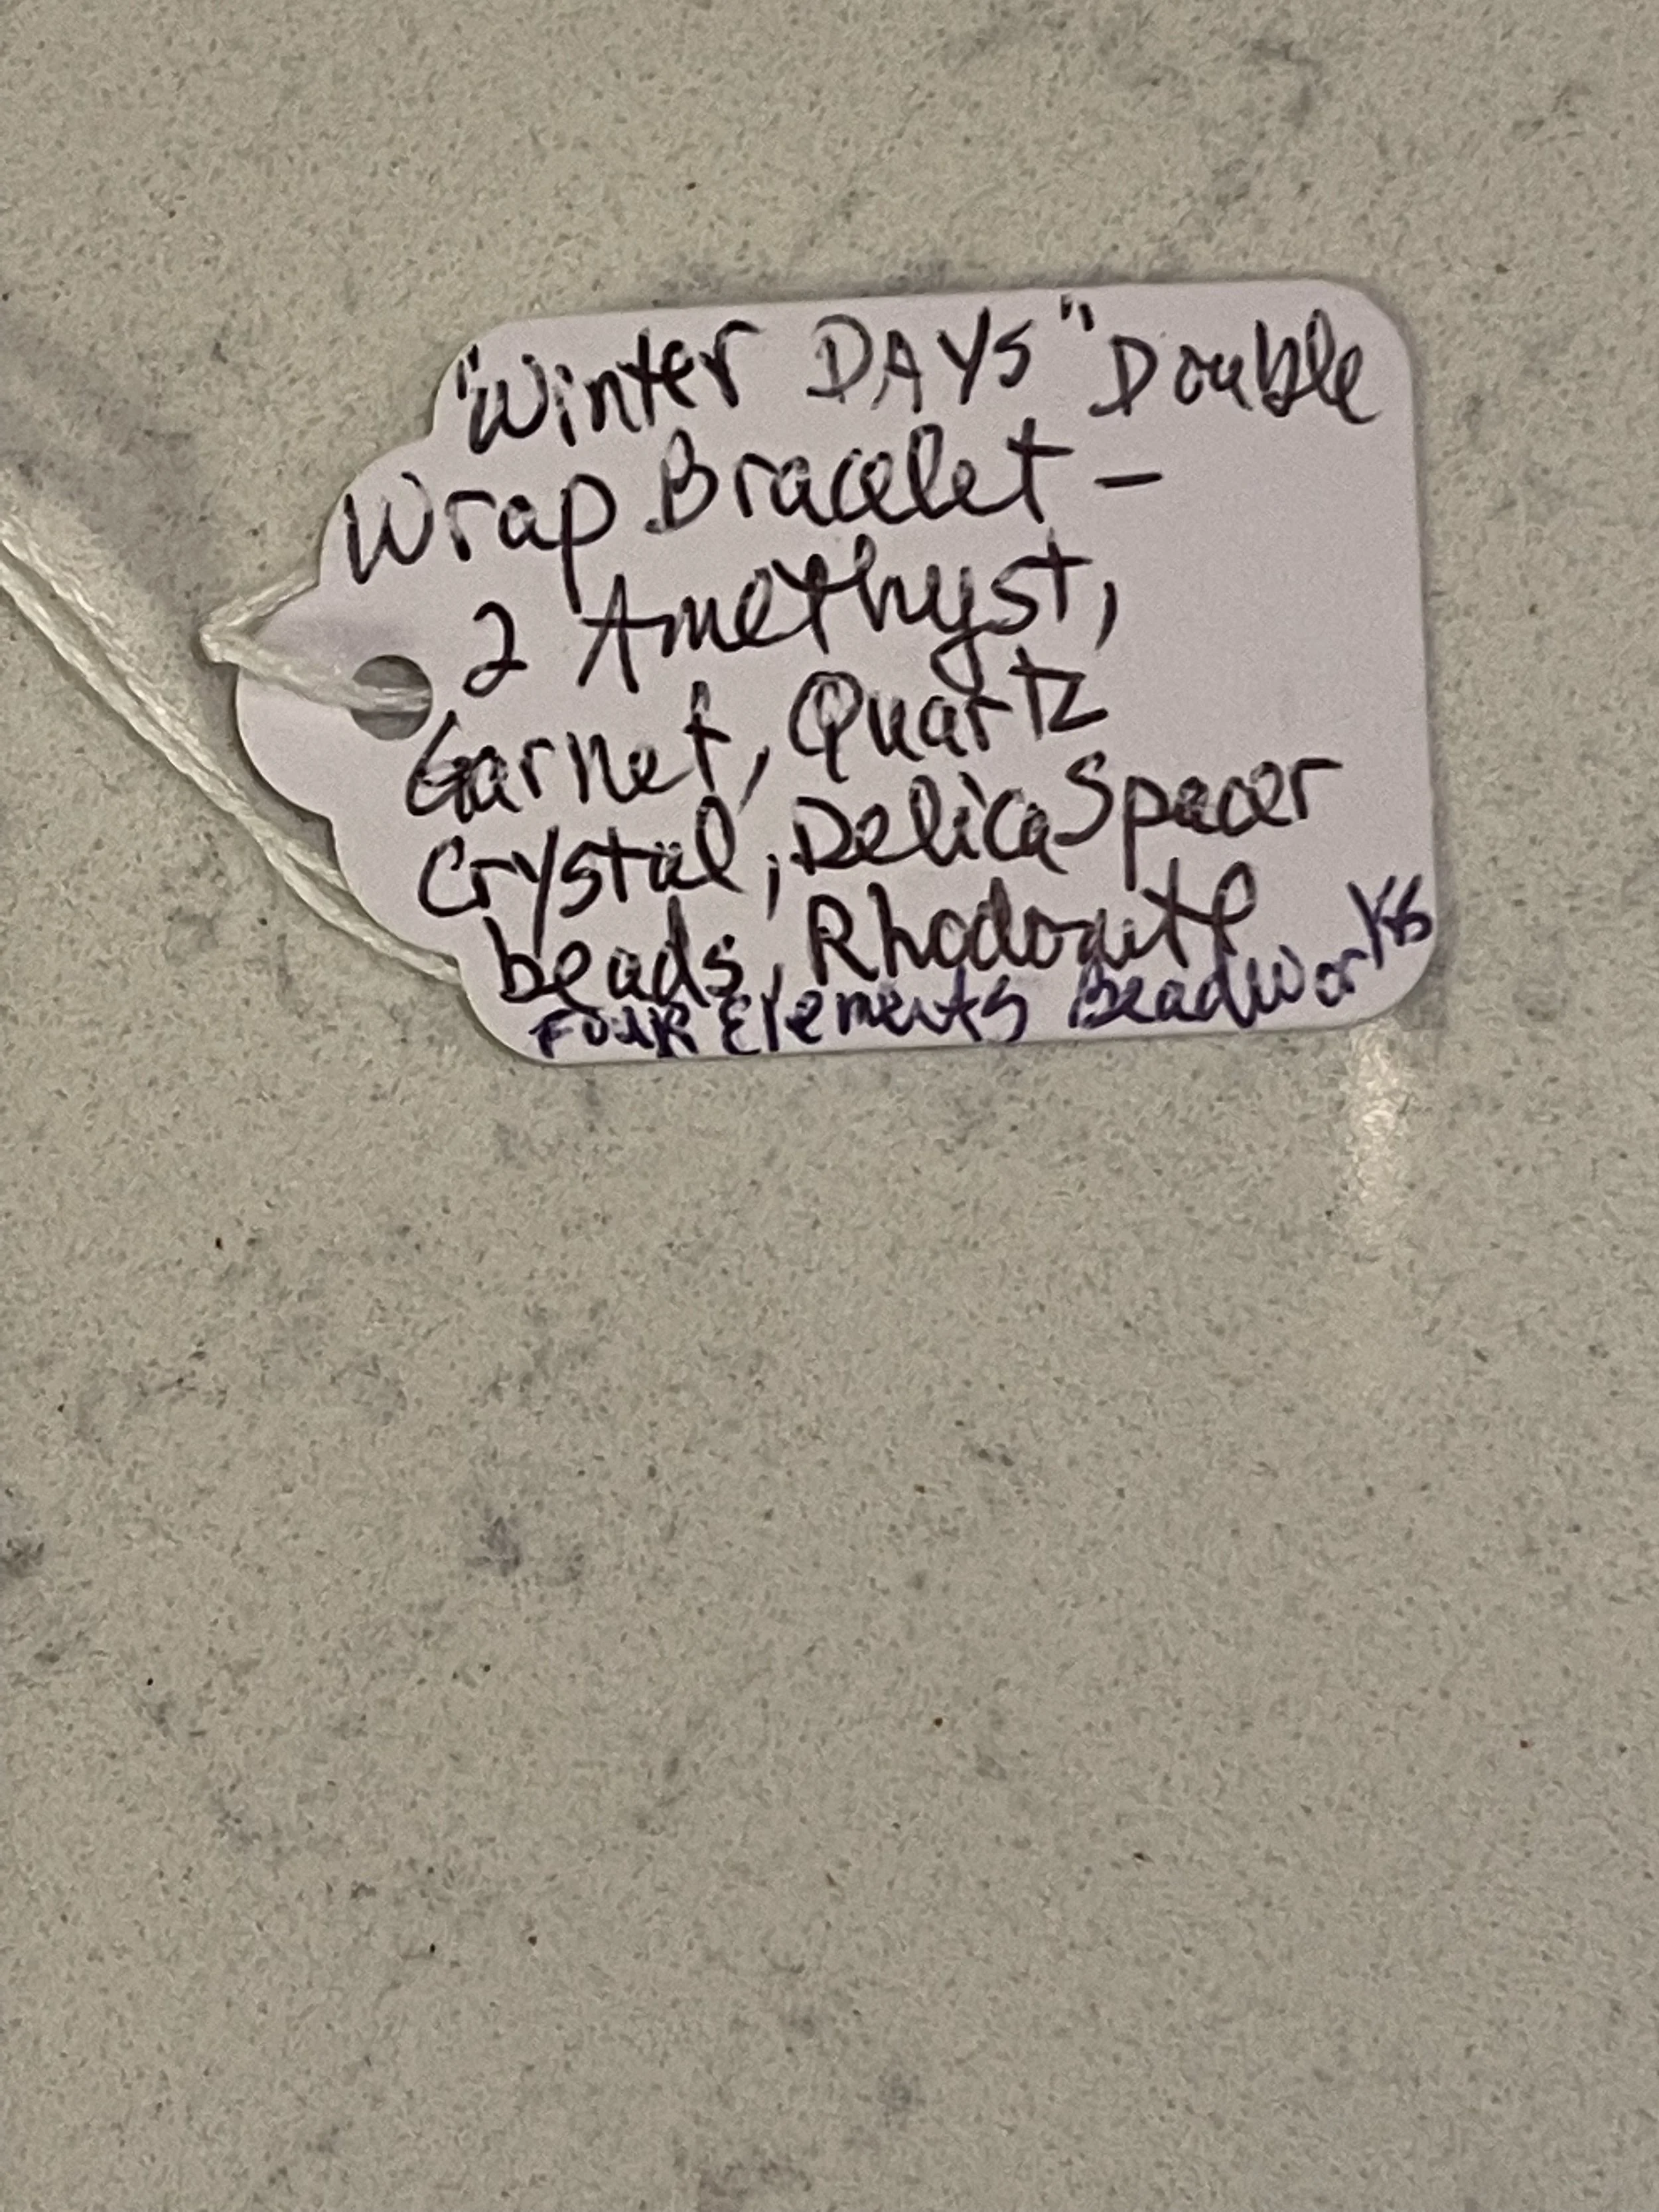 "Winter DAYS" Double
Wrap Bracelet -
2 Amethyst,
Garnet, Quartz
Crystal, Delica Spacer
beads, Rhodonite
Four Elements Beadworks